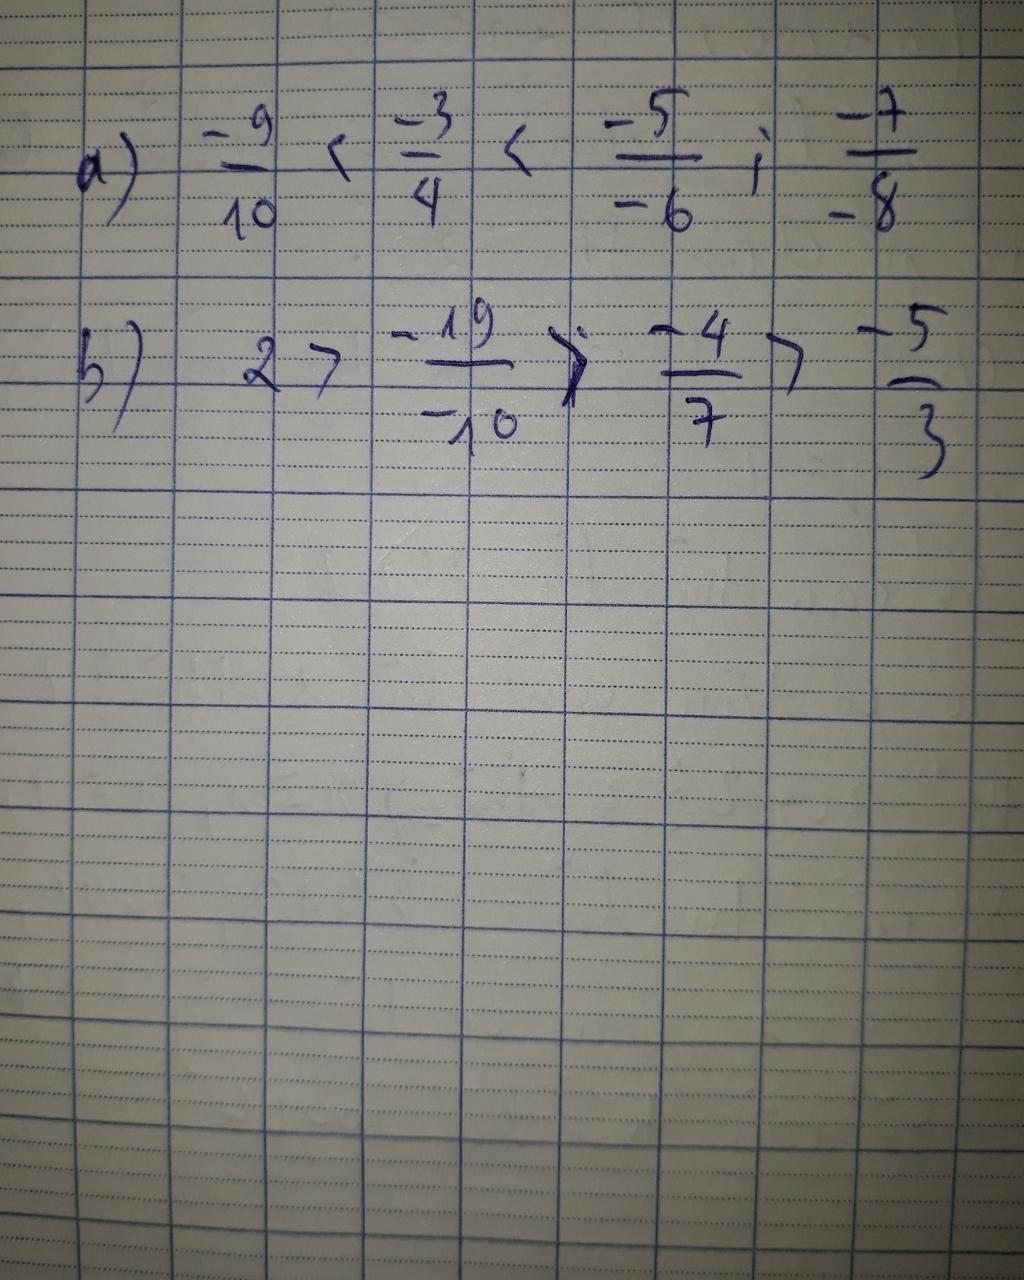 a) -9/10 < -3/4 < -5/-6 ; -7/-8
b) 2 > -19/-10 > -4/7 > -5/3